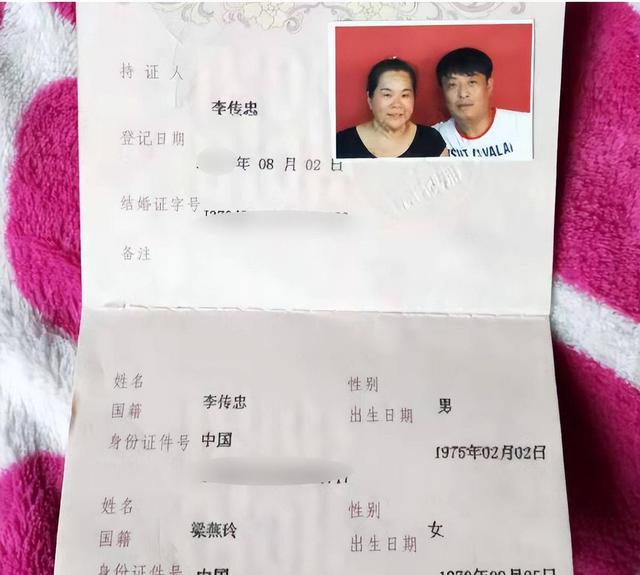 持证人
李传忠
登记日期
年 08 月 02 日
结婚证字号
备注
姓名 李传忠 性别 男
国籍 中国 出生日期 1975年02月02日
身份证件号
姓名 梁燕玲 性别 女
国籍 中国 出生日期
身份证件号